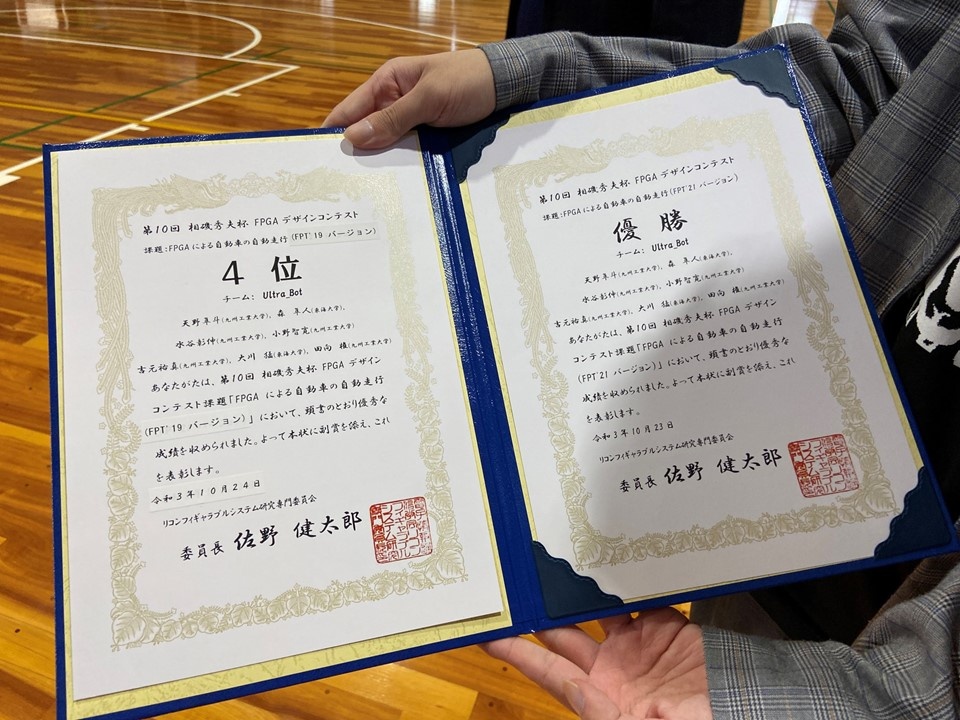 第10回 相磯秀夫杯 FPGA デザインコンテスト
課題:FPGAによる自動車の自動走行(FPT'19 バージョン)
4 位
チーム: Ultra_Bot
天野隼斗(九州工業大学), 森 隼人(東海大学),
水谷彰伸(九州工業大学), 小野智寛(九州工業大学),
吉元裕真(九州工業大学), 大川 猛(東海大学), 田向 権(九州工業大学)
あなたがたは、第10回 相磯秀夫杯 FPGA デザイン
コンテスト課題「FPGA による自動車の自動走行
(FPT'19 バージョン)」において、頭書のとおり優秀な
成績を収められました。よって本状に副賞を添え、これ
を表彰します。
令和3年10月24日
リコンフィギャラブルシステム研究専門委員会
委員長 佐野 健太郎
第10回 相磯秀夫杯 FPGA デザインコンテスト
課題:FPGAによる自動車の自動走行(FPT'21 バージョン)
優 勝
チーム: Ultra_Bot
天野隼斗(九州工業大学), 森 隼人(東海大学),
水谷彰伸(九州工業大学), 小野智寛(九州工業大学),
吉元裕真(九州工業大学), 大川 猛(東海大学), 田向 権(九州工業大学)
あなたがたは、第10回 相磯秀夫杯 FPGA デザイン
コンテスト課題「FPGA による自動車の自動走行
(FPT'21 バージョン)」において、頭書のとおり優秀な
成績を収められました。よって本状に副賞を添え、これ
を表彰します。
令和3年10月23日
リコンフィギャラブルシステム研究専門委員会
委員長 佐野 健太郎